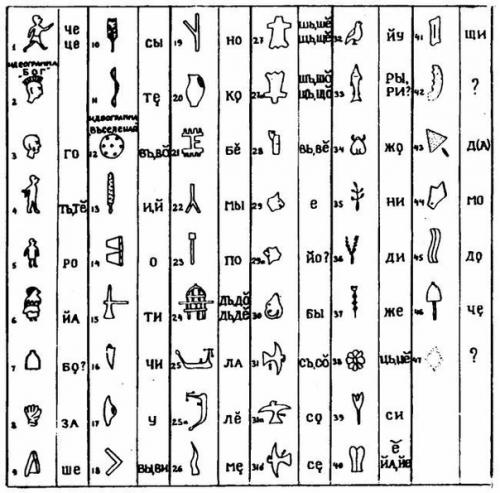 1 ЧЕ ЦЕ 10 СЫ 19 НО 27 32 ЙУ 41 ЩИ
ИДЕОГРАММА "БОГ"
2 11 ТЕ̨ 20 КО̨ 27а 33 РЫ, РИ? 42 ?
ИДЕОГРАММА ВЪСЕЛЕНАЯ
3 ГО 12 ВЪ,ВО̆ 21 БӖ 28 ВЬ,ВӖ 34 ЖО̨ 43
4 ТЬ,ТӖ 13 И,Й 22 МЫ 29 Е 35 НИ 44 МО
5 РО 14 О 23 ПО 29а ЙО? 36 ДИ 45 ДО̨
6 ЙА 15 ТИ 24 30 БЫ 37 ЖЕ 46 ЧЕ̨
7 БО̨? 16 ЧИ 25 ЛА 31 СЪ,СО̆ 38 ЦЬ,ЦӖ 47 ?
8 ЗА 17 У 25а ЛӖ 31а СО̨ 39 СИ
9 ШЕ 18 ВЫ,ВИ 26 МЕ̨ 31б СЕ̨ 40 Ӗ ЙА,ЙЕ